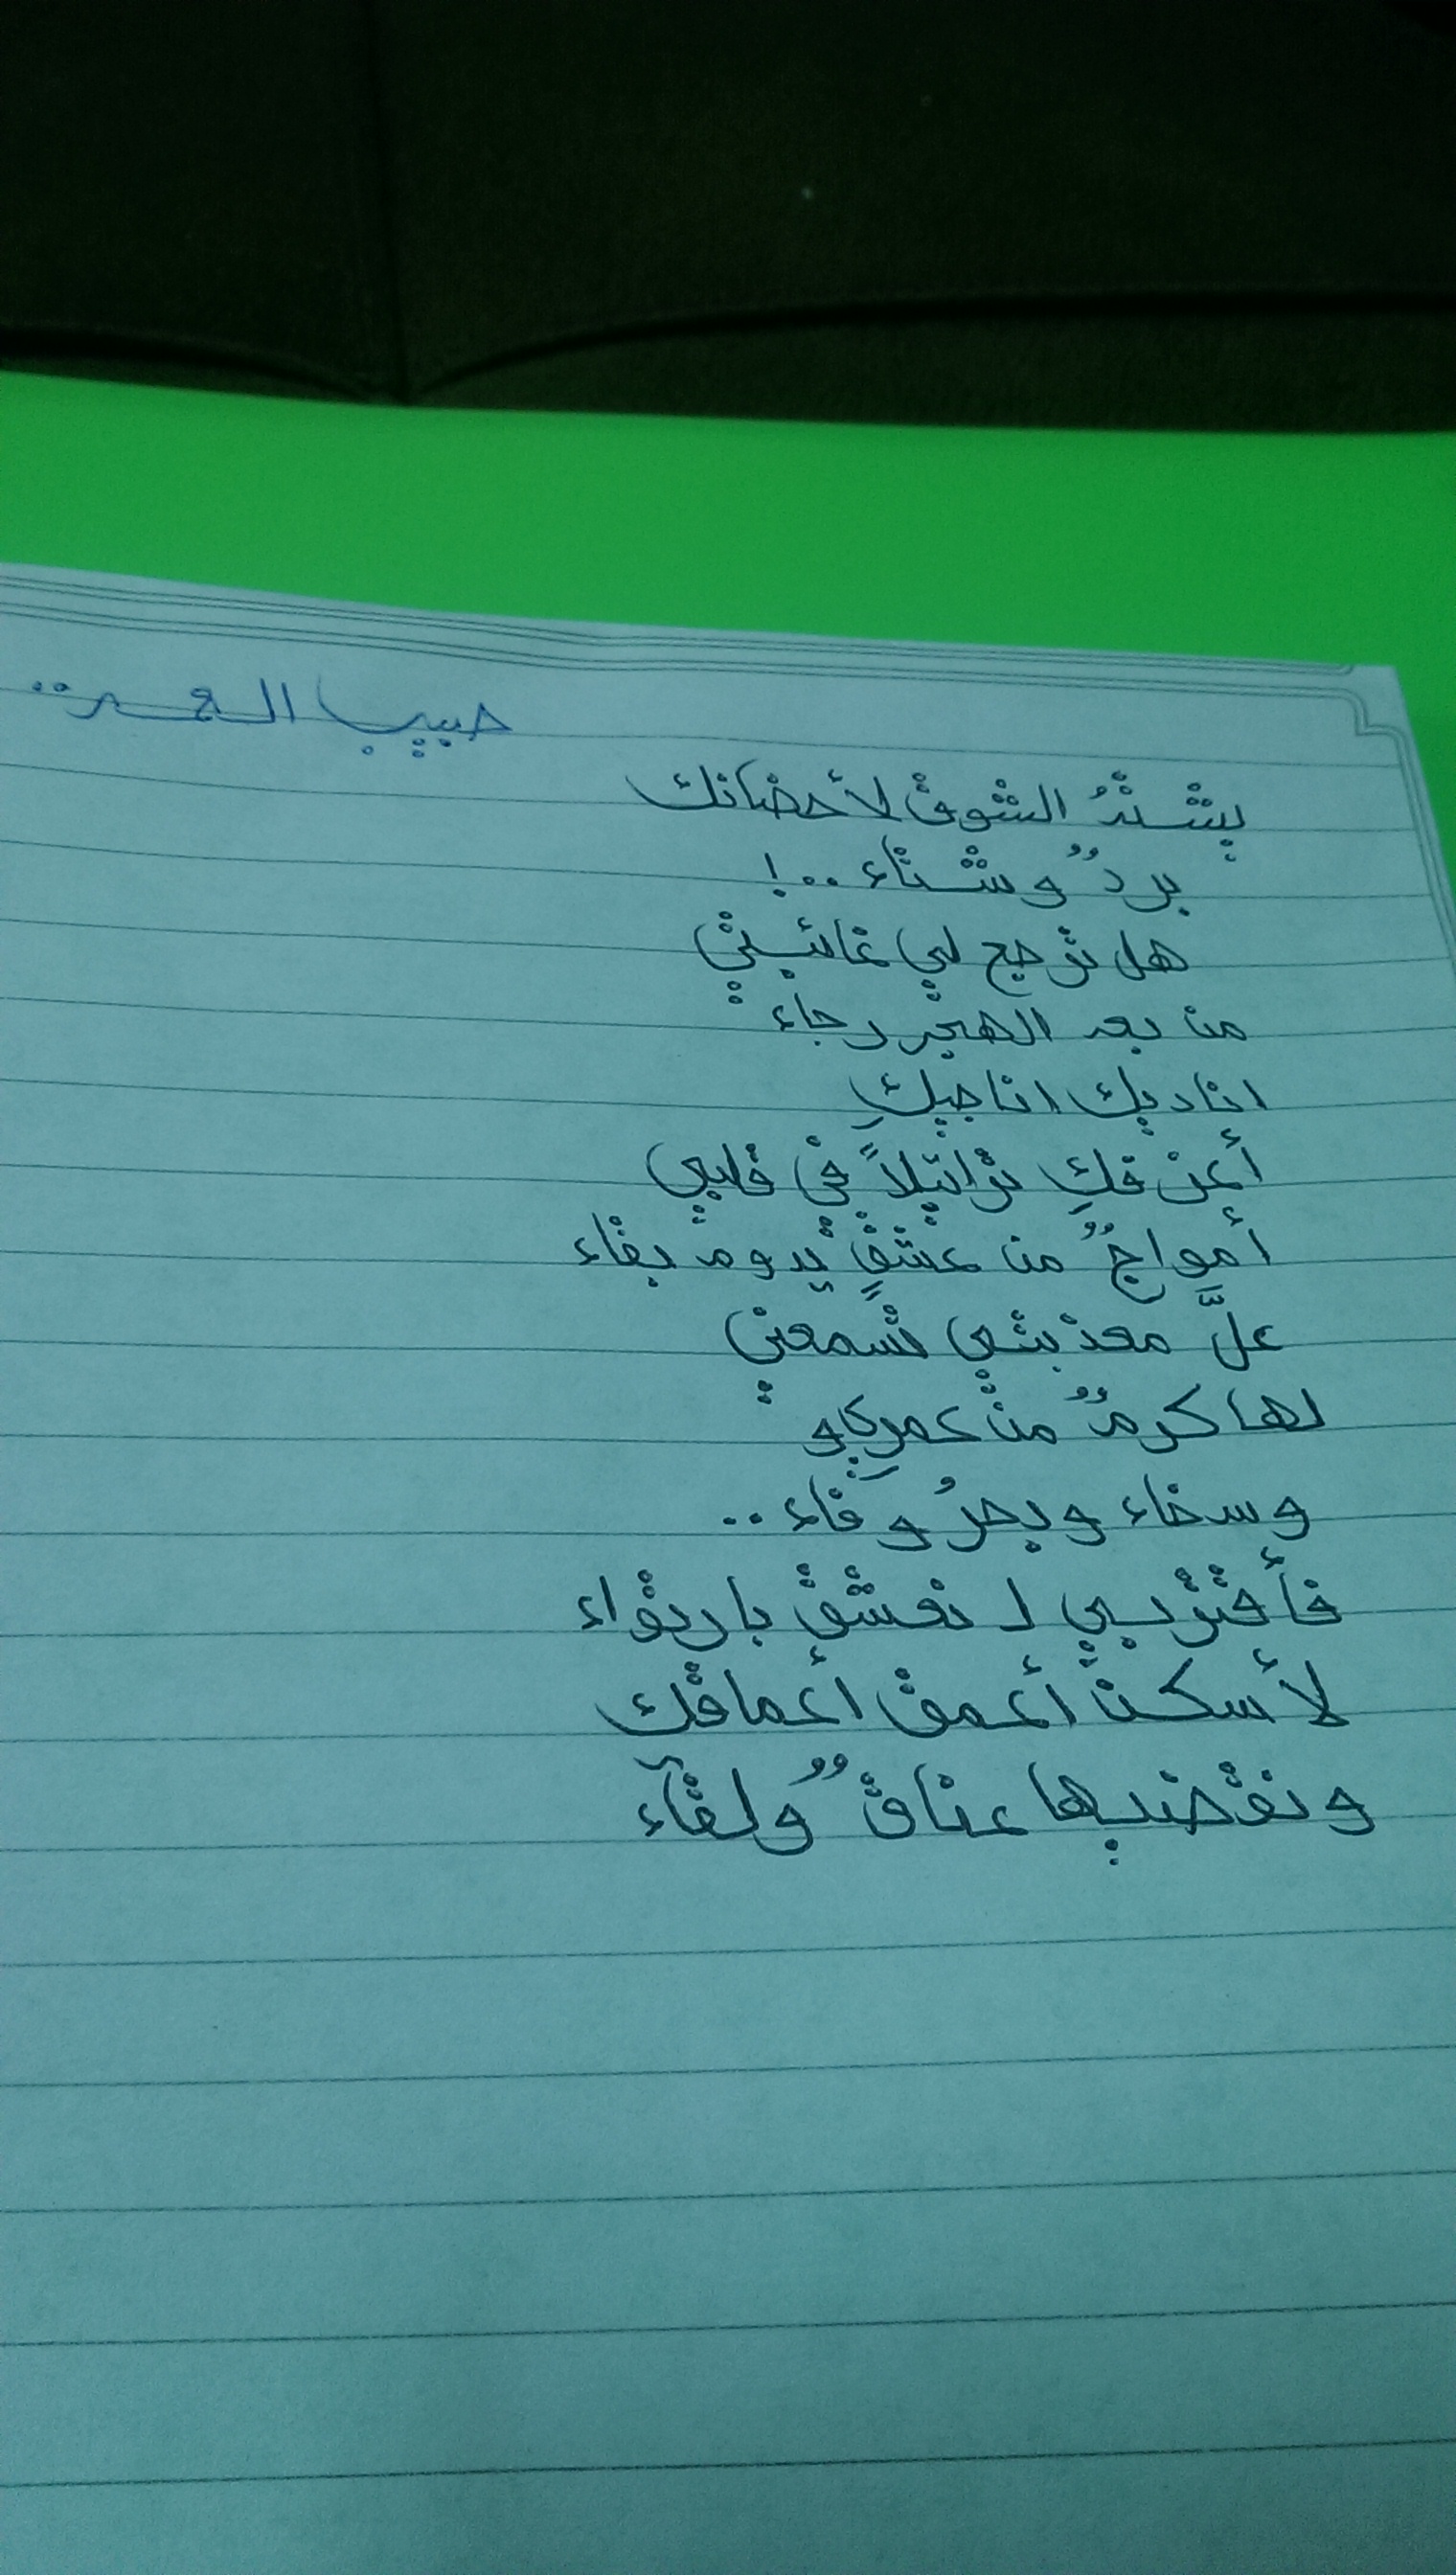 حبيب العمر..
يشتدُ الشوق لأحضانك
بردٌ وشتاء ..!
هل ترجع لي غائبتي
من بعد الهجر رجاء
اناديك اناجيكِ
أعزفكِ تراتيلاً في قلبي
أمواجٌ من عشقٍ يدوم بقاء
علَّ معذبتي تسمعني
لها كرمٌ من عمري و
وسخاء وبحرُ وفاء ..
فأقتربي لنعشق بارتواء
لأسكن أعمق أعماقك
ونقضيها عناقٌ ولقآء